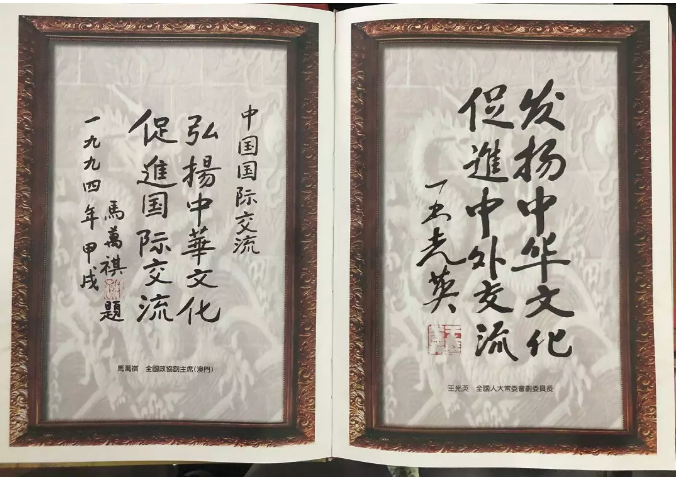 中国国际交流
弘揚中華文化
促進国际交流
一九九四年甲戌
馬萬祺題
馬萬祺 全國政協副主席(澳門)
发扬中华文化
促進中外交流
王光英
王光英 全國人大常委會副委員長